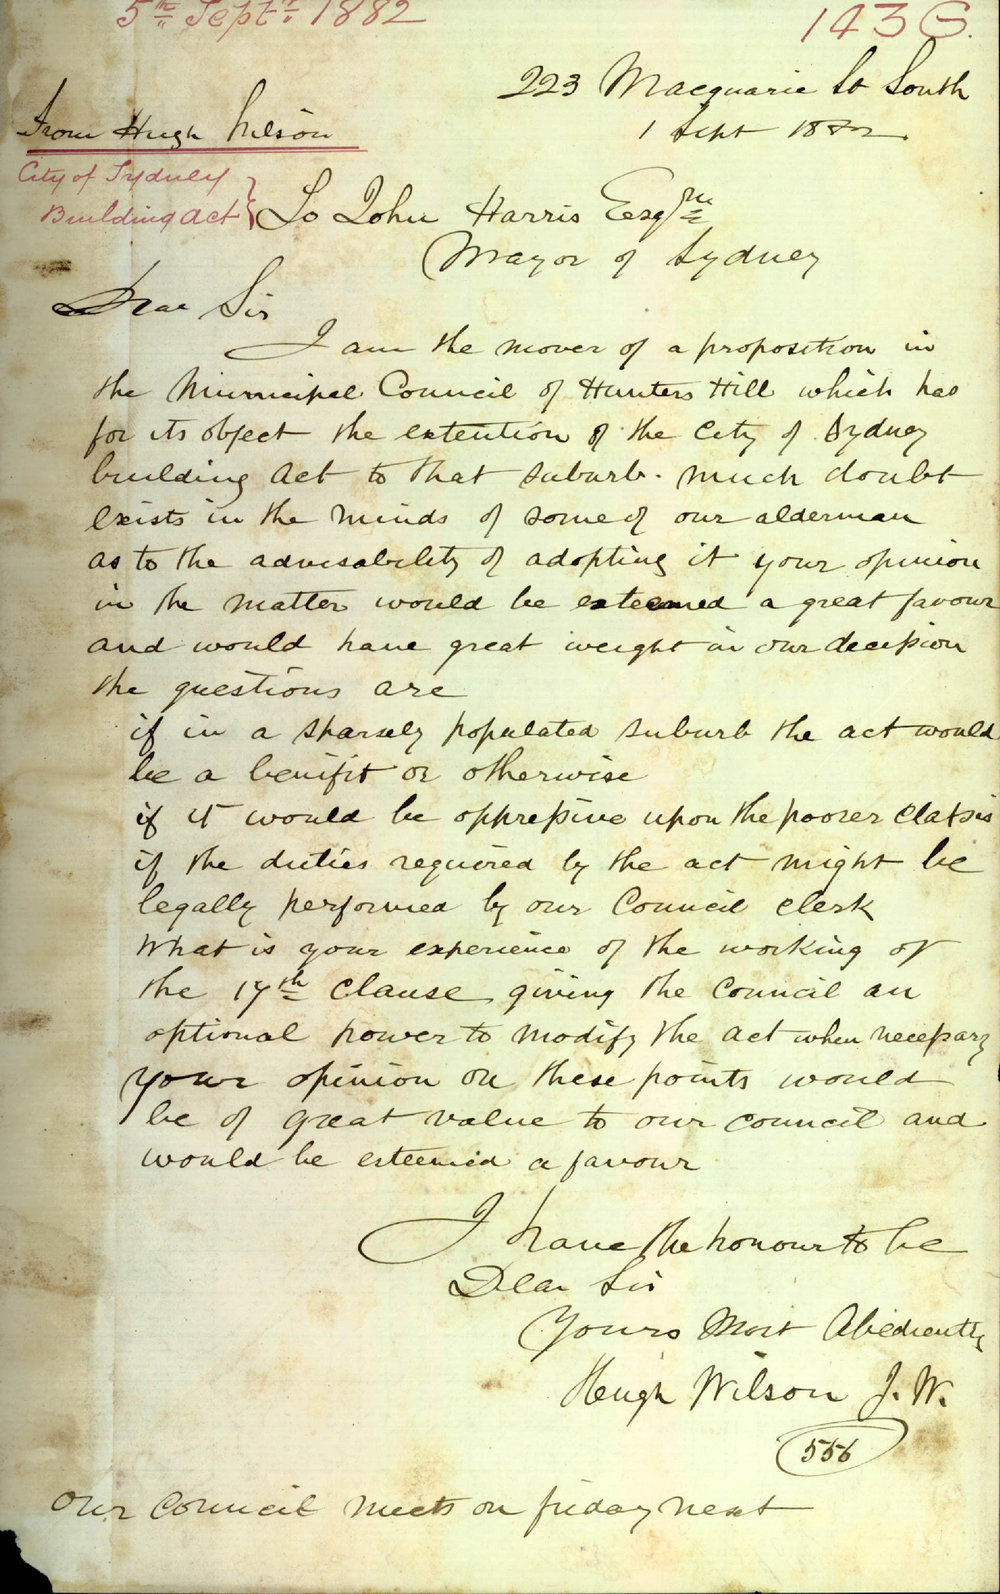 5th Septr 1882
143G.
223 Macquarie St South
1 Sept 1882
From Hugh Wilson
City of Sydney
Building Act
To John Harris Esqre
Mayor of Sydney
Dear Sir
I am the mover of a proposition in
the Municipal Council of Hunters Hill which has
for its object the extention of the City of Sydney
building Act to that suburb. much doubt
exists in the minds of some of our alderman
as to the advisability of adopting it your opinion
in the matter would be esteemed a great favour
and would have great weight in our decission
the questions are
if in a sparsely populated suburb the act would
be a benifit or otherwise
if it would be oppressive upon the poorer classis
if the duties required by the act might be
legally performed by our Council clerk
What is your experience of the working of
the 17th Clause giving the Council an
optional power to modify the Act when necessary
your opinion on these points would
be of great value to our council and
would be esteemed a favour
I have the honour to be
Dear Sir
Yours Most Abediently
Hugh Wilson J. W.
556
Our Council meets on friday next